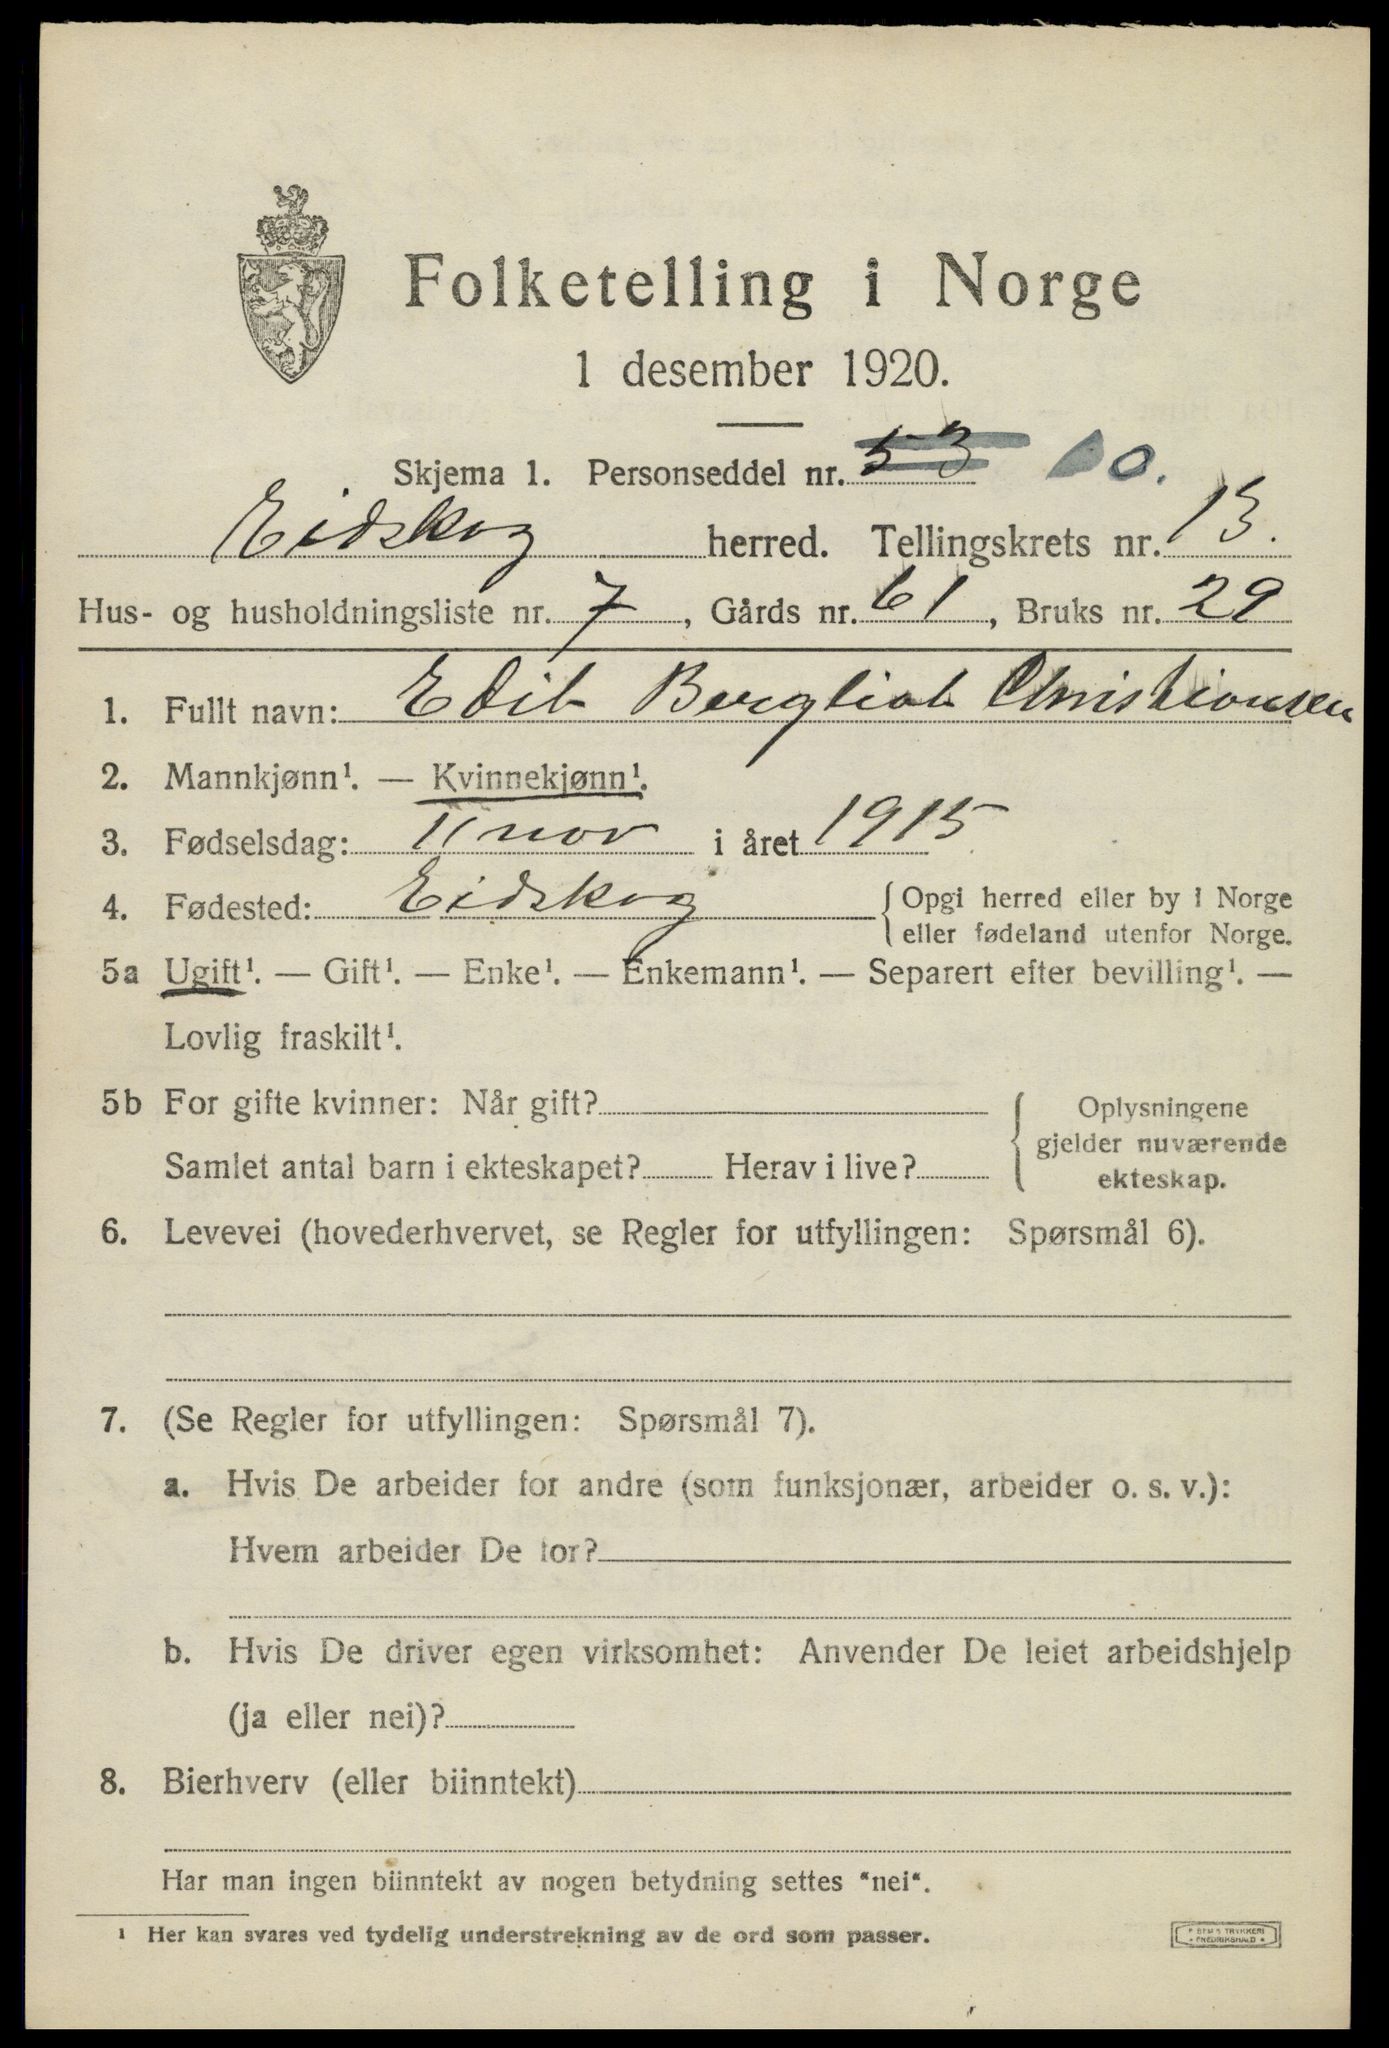 Folketelling i Norge
1 desember 1920.
Skjema 1. Personseddel nr. 53
Eidskog herred. Tellingskrets nr. 13.
Hus- og husholdningsliste nr. 7, Gårds nr. 61, Bruks nr. 29
1. Fullt navn: Edit Bergliot Christiansen
2. Mannkjønn¹. — Kvinnekjønn¹.
3. Fødselsdag: 11 nov i året 1915
4. Fødested: Eidskog {Opgi herred eller by i Norge
eller fødeland utenfor Norge.
5a Ugift¹. — Gift¹. — Enke¹. — Enkemann¹. — Separert efter bevilling¹. —
Lovlig fraskilt¹.
5b For gifte kvinner: Når gift?
Samlet antal barn i ekteskapet? Herav i live?
Oplysningene
gjelder nuværende
ekteskap.
6. Levevei (hovederhvervet, se Regler for utfyllingen: Spørsmål 6).
7. (Se Regler for utfyllingen: Spørsmål 7).
a. Hvis De arbeider for andre (som funksjonær, arbeider o. s. v.):
Hvem arbeider De for?
b. Hvis De driver egen virksomhet: Anvender De leiet arbeidshjelp
(ja eller nei)?
8. Bierhverv (eller biinntekt)
Har man ingen biinntekt av nogen betydning settes "nei".
¹ Her kan svares ved tydelig understrekning av de ord som passer.